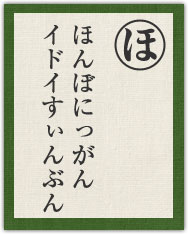 ほ
ほんぽにっがん
イドイすぃんぶん